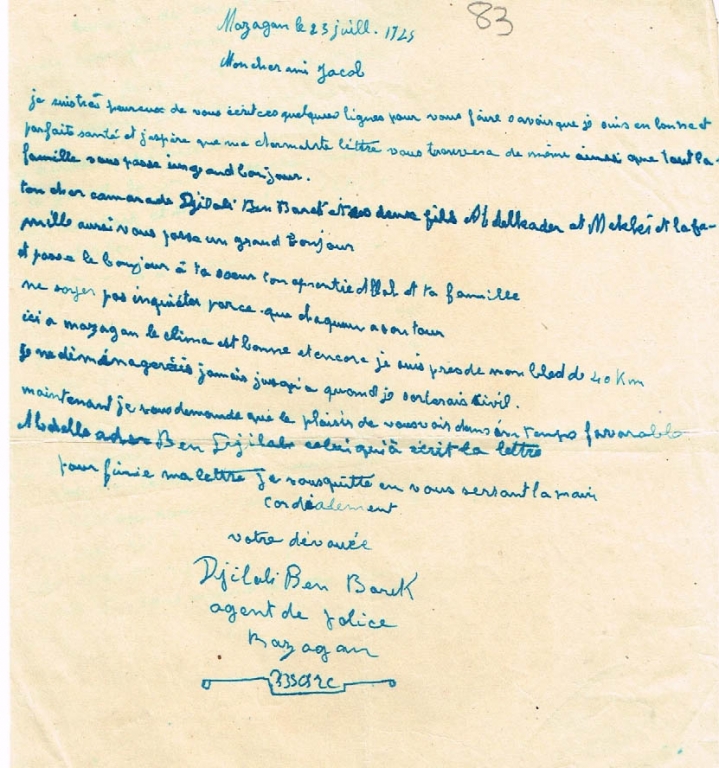 83
Mazagan le 23 juill. 1945
Mon cher ami Jacob
je suis très heureux de vous écrit ces quelques lignes pour vous faire savoir que je suis en bonne et
parfaite santé et j'aspire que ma charmante lettre vous trouvera de même ainsi que tout la
famille vous passe un grand bonjour.
ton cher camarade Djilali Ben Barek et ses deux fils Abdelkader et Mekki et la fa-
mille aussi vous passe un grand bonjour
et passe le bonjour à ta soeur ton aprentie et ta famille
ne soyer pas inquiéter parce que chaquun a son tour
ici a mazagan le clima est bonne et encore je suis pres de mon bled de 40 Km
je ne déménagerais jamais jusqu'a quand je sorterais civil.
maintenant je vous demande que le plaisir de vous voir dans un temps favorable
Abdelkader Ben Djilali celui qu'à écrit la lettre
pour finir ma lettre je vous quitte en vous serrant la main
cordialement
votre dévouée
Djilali Ben Barek
agent de police
Mazagan